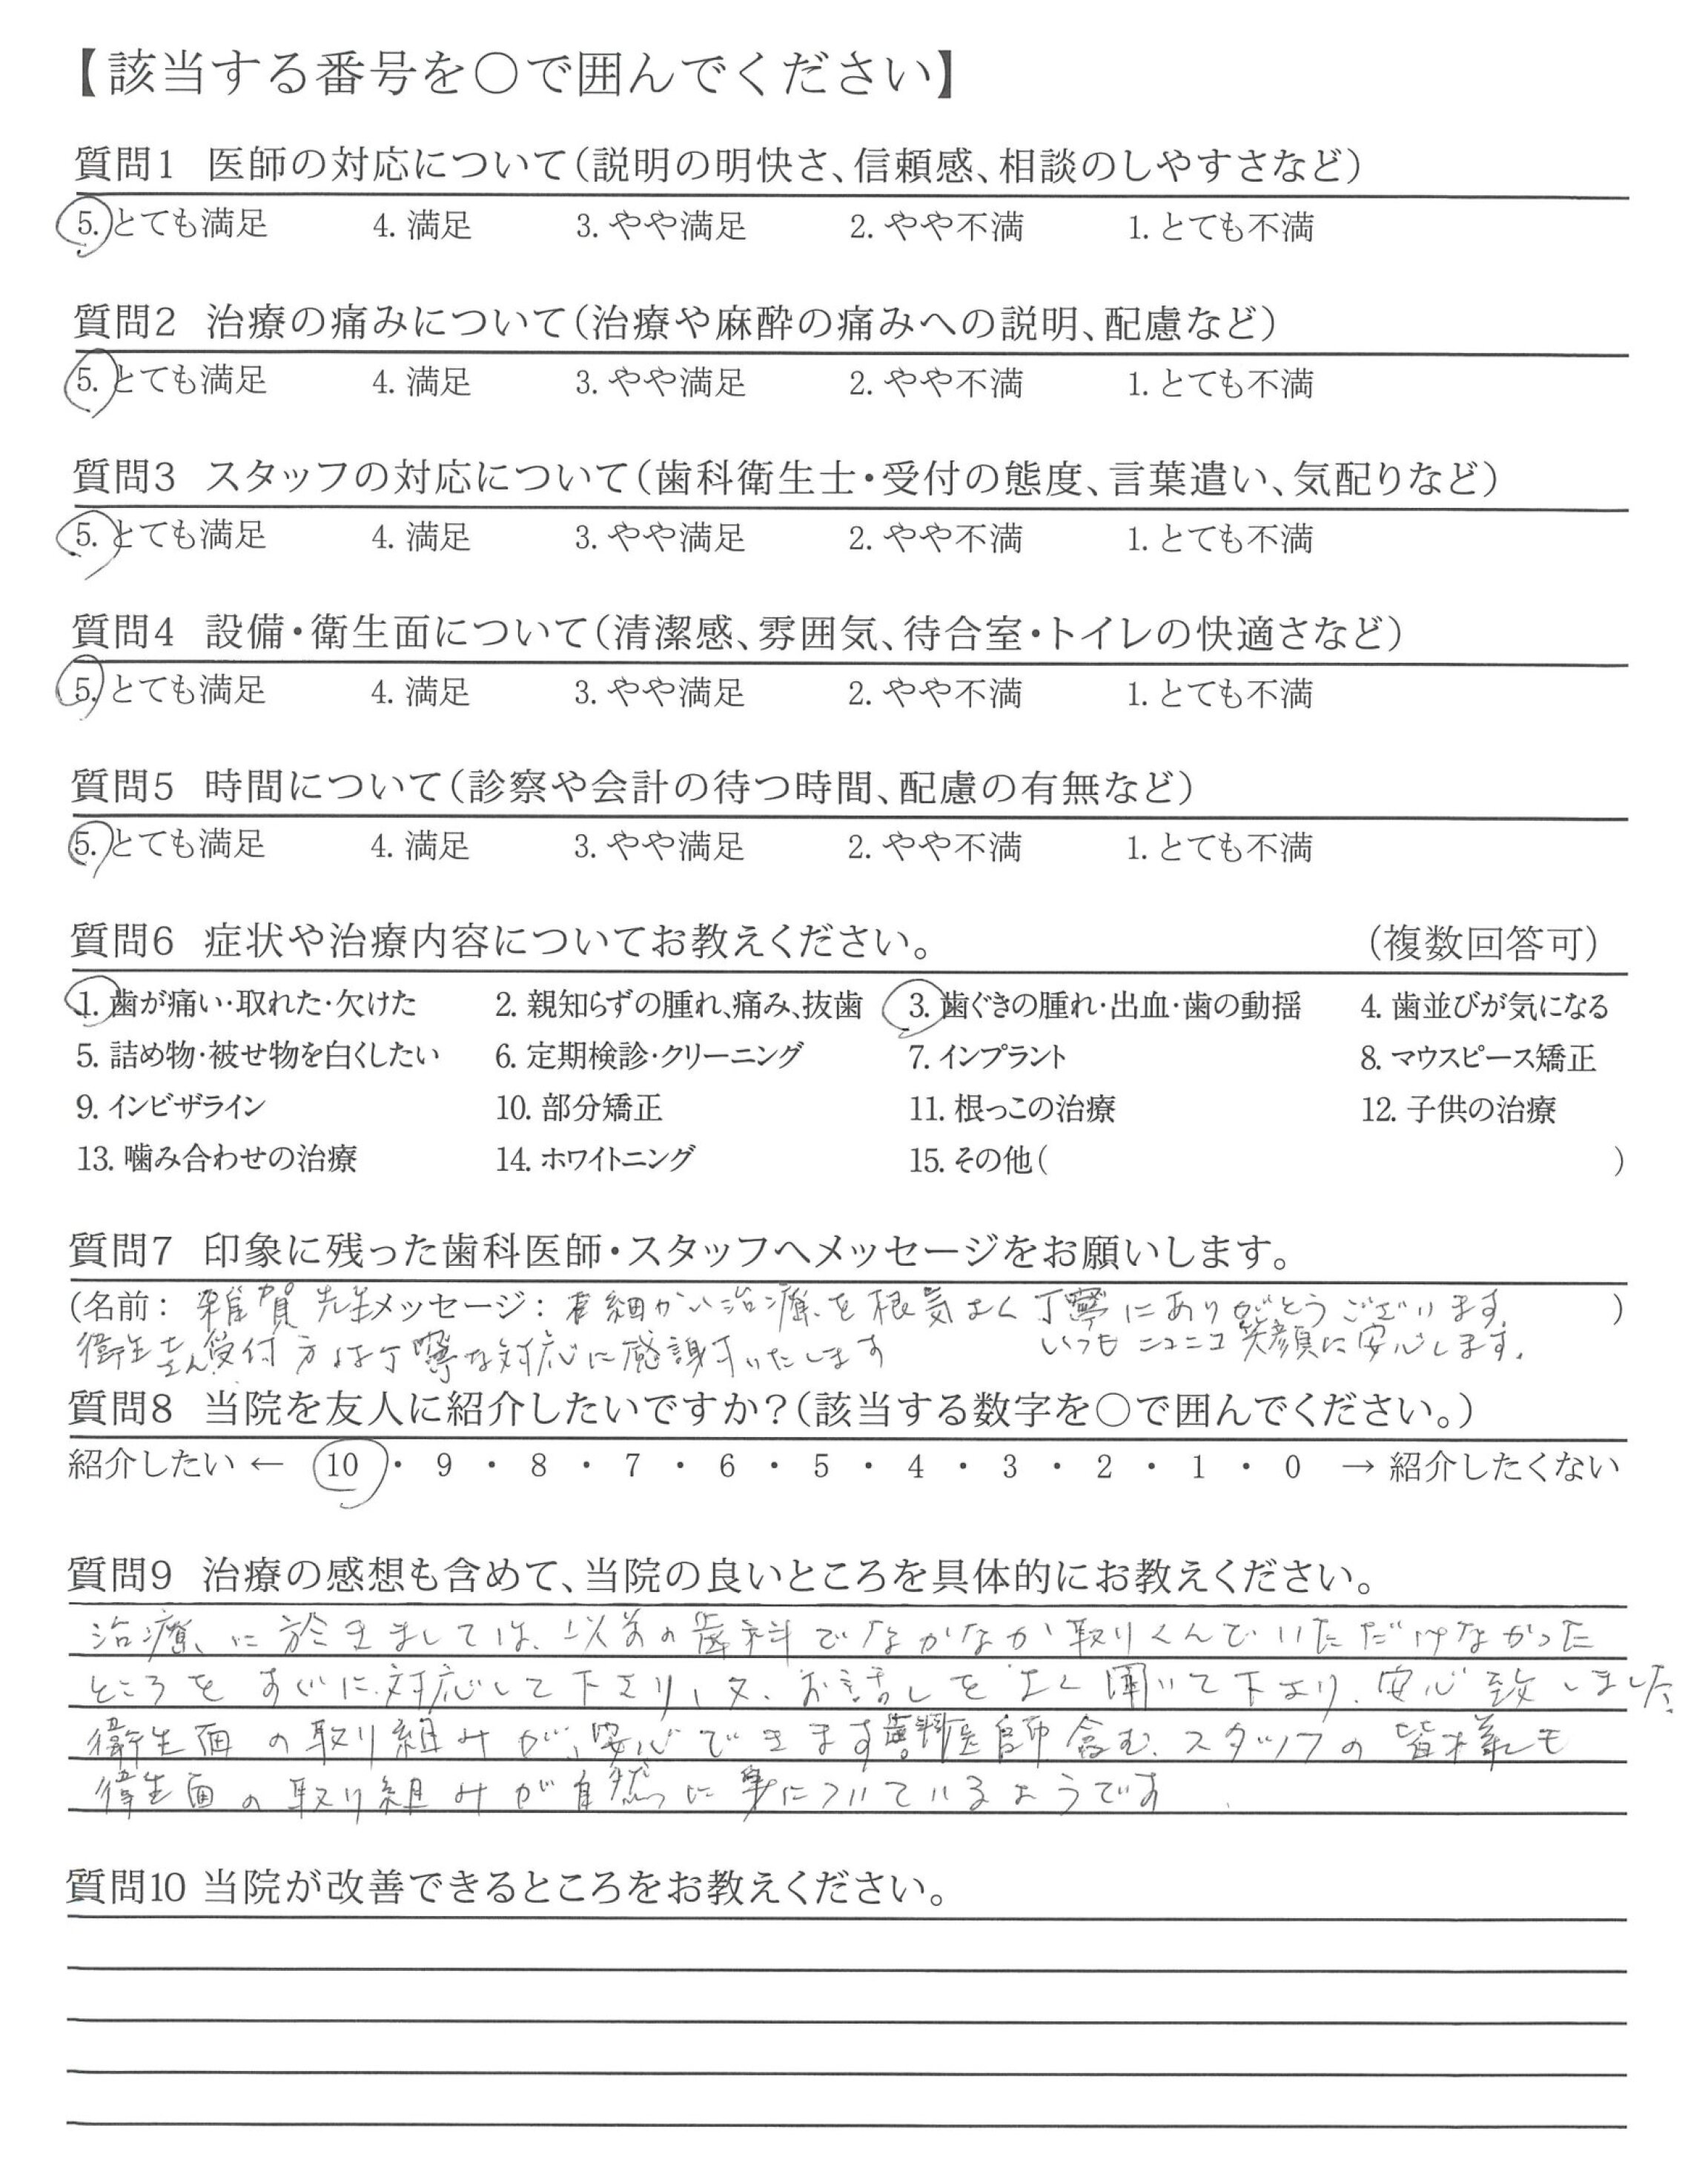 【該当する番号を○で囲んでください】
質問1 医師の対応について(説明の明快さ、信頼感、相談のしやすさなど)
5. とても満足 4. 満足 3. やや満足 2. やや不満 1. とても不満
質問2 治療の痛みについて(治療や麻酔の痛みへの説明、配慮など)
5. とても満足 4. 満足 3. やや満足 2. やや不満 1. とても不満
質問3 スタッフの対応について(歯科衛生士・受付の態度、言葉遣い、気配りなど)
5. とても満足 4. 満足 3. やや満足 2. やや不満 1. とても不満
質問4 設備・衛生面について(清潔感、雰囲気、待合室・トイレの快適さなど)
5. とても満足 4. 満足 3. やや満足 2. やや不満 1. とても不満
質問5 時間について(診察や会計の待つ時間、配慮の有無など)
5. とても満足 4. 満足 3. やや満足 2. やや不満 1. とても不満
質問6 症状や治療内容についてお教えください。 (複数回答可)
1. 歯が痛い・取れた・欠けた 2. 親知らずの腫れ、痛み、抜歯 3. 歯ぐきの腫れ・出血・歯の動揺 4. 歯並びが気になる
5. 詰め物・被せ物を白くしたい 6. 定期検診・クリーニング 7. インプラント 8. マウスピース矯正
9. インビザライン 10. 部分矯正 11. 根っこの治療 12. 子供の治療
13. 噛み合わせの治療 14. ホワイトニング 15. その他( )
質問7 印象に残った歯科医師・スタッフへメッセージをお願いします。
(名前: 雑賀先生 メッセージ: 細かい治療を根気よく丁寧にありがとうございます。 )
いつもニコニコ笑顔に安心します。
衛生士さん、受付方々は丁寧な対応に感謝いたします
質問8 当院を友人に紹介したいですか?(該当する数字を○で囲んでください。)
紹介したい ← 10 ・ 9 ・ 8 ・ 7 ・ 6 ・ 5 ・ 4 ・ 3 ・ 2 ・ 1 ・ 0 → 紹介したくない
質問9 治療の感想も含めて、当院の良いところを具体的にお教えください。
治療に於きましては、以前の歯科でなかなか取りくんでいただけなかった
ところをすぐに対応して下さり、又、お話しをよく聞いて下さり、安心致しました。
衛生面の取り組みが、安心できます。歯科医師含む、スタッフの皆様も
衛生面の取り組みが自然に身についているようです.
質問10 当院が改善できるところをお教えください。